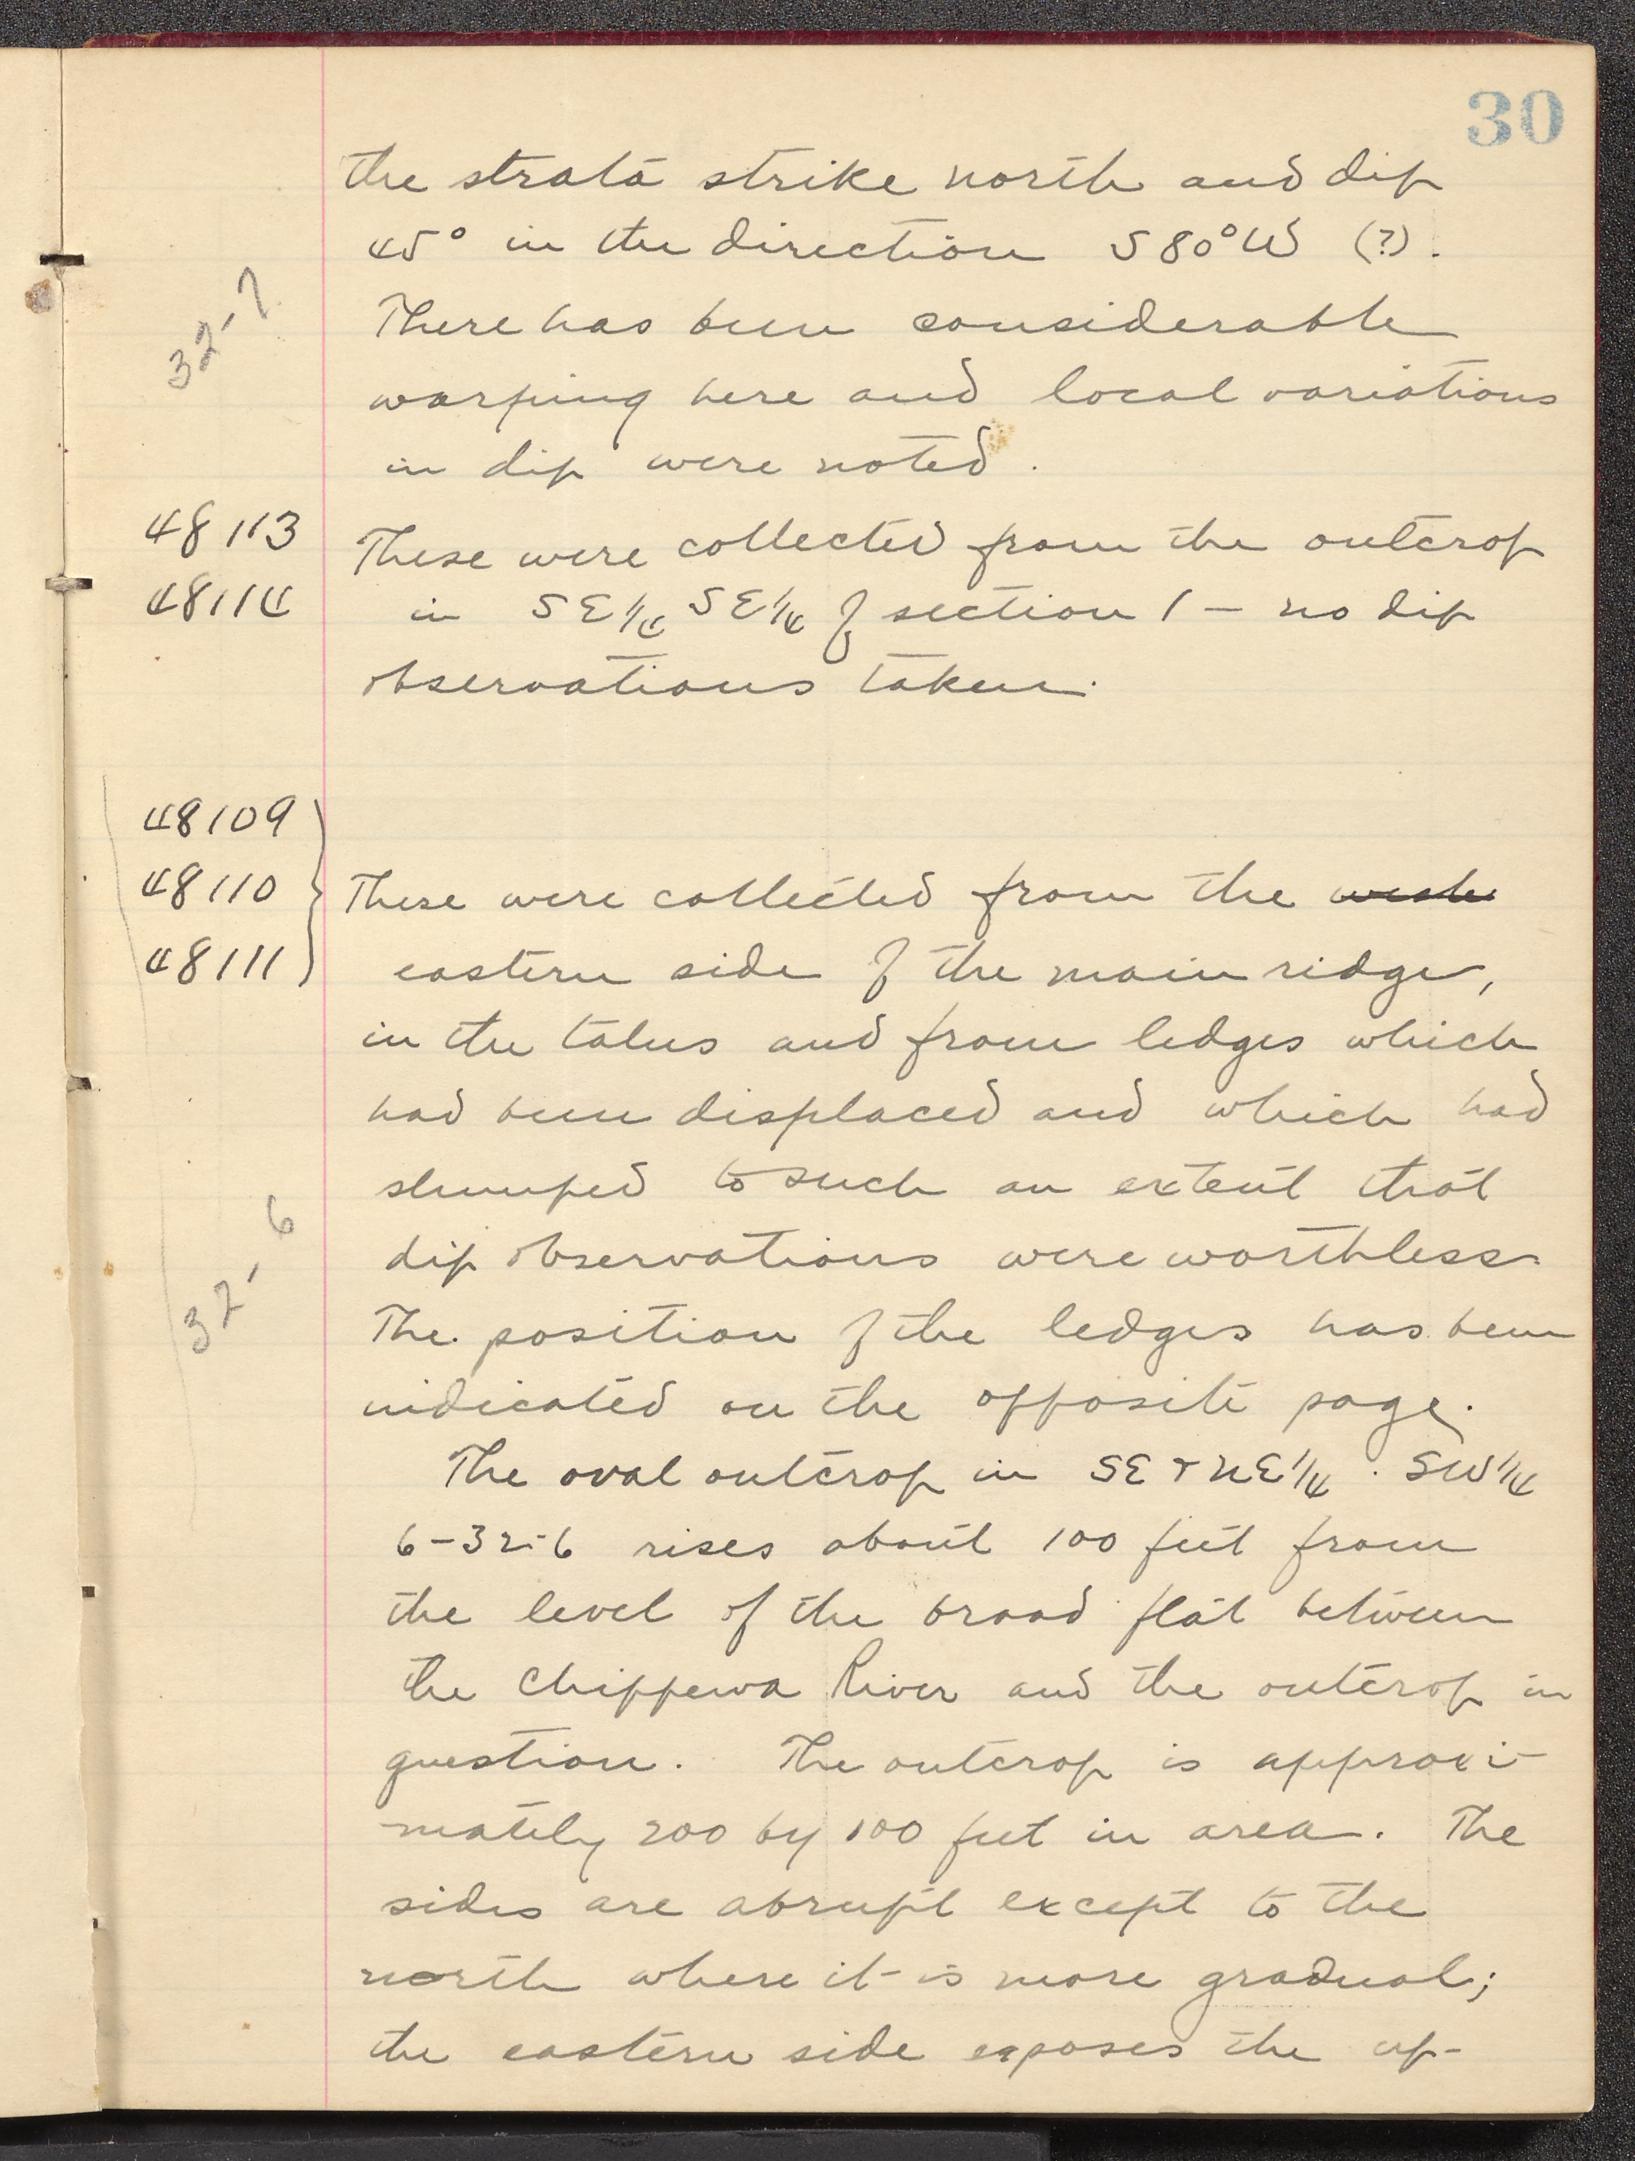 30
the strata strike north and dip
45° in the direction S 80° W (?).
32-7
There has been considerable
warping here and local variations
in dip were noted.
48113
These were collected from the outcrop
48114
in SE1/4 SE1/4 of section 1 – no dip
observations taken.
48109
48110
These were collected from the
48111
eastern side of the main ridge,
in the talus and from ledges which
had been displaced and which had
slumped to such an extent that
dip observations were worthless.
32-6
The position of the ledges has been
indicated on the opposite page.
The oval outcrop in SE + NE1/4 . SW1/4
6-32-6 rises about 100 feet from
the level of the broad flat between
the Chippewa River and the outcrop in
question. The outcrop is approxi-
mately 200 by 100 feet in area. The
sides are abrupt except to the
north where it is more gradual;
the eastern side exposes the up-